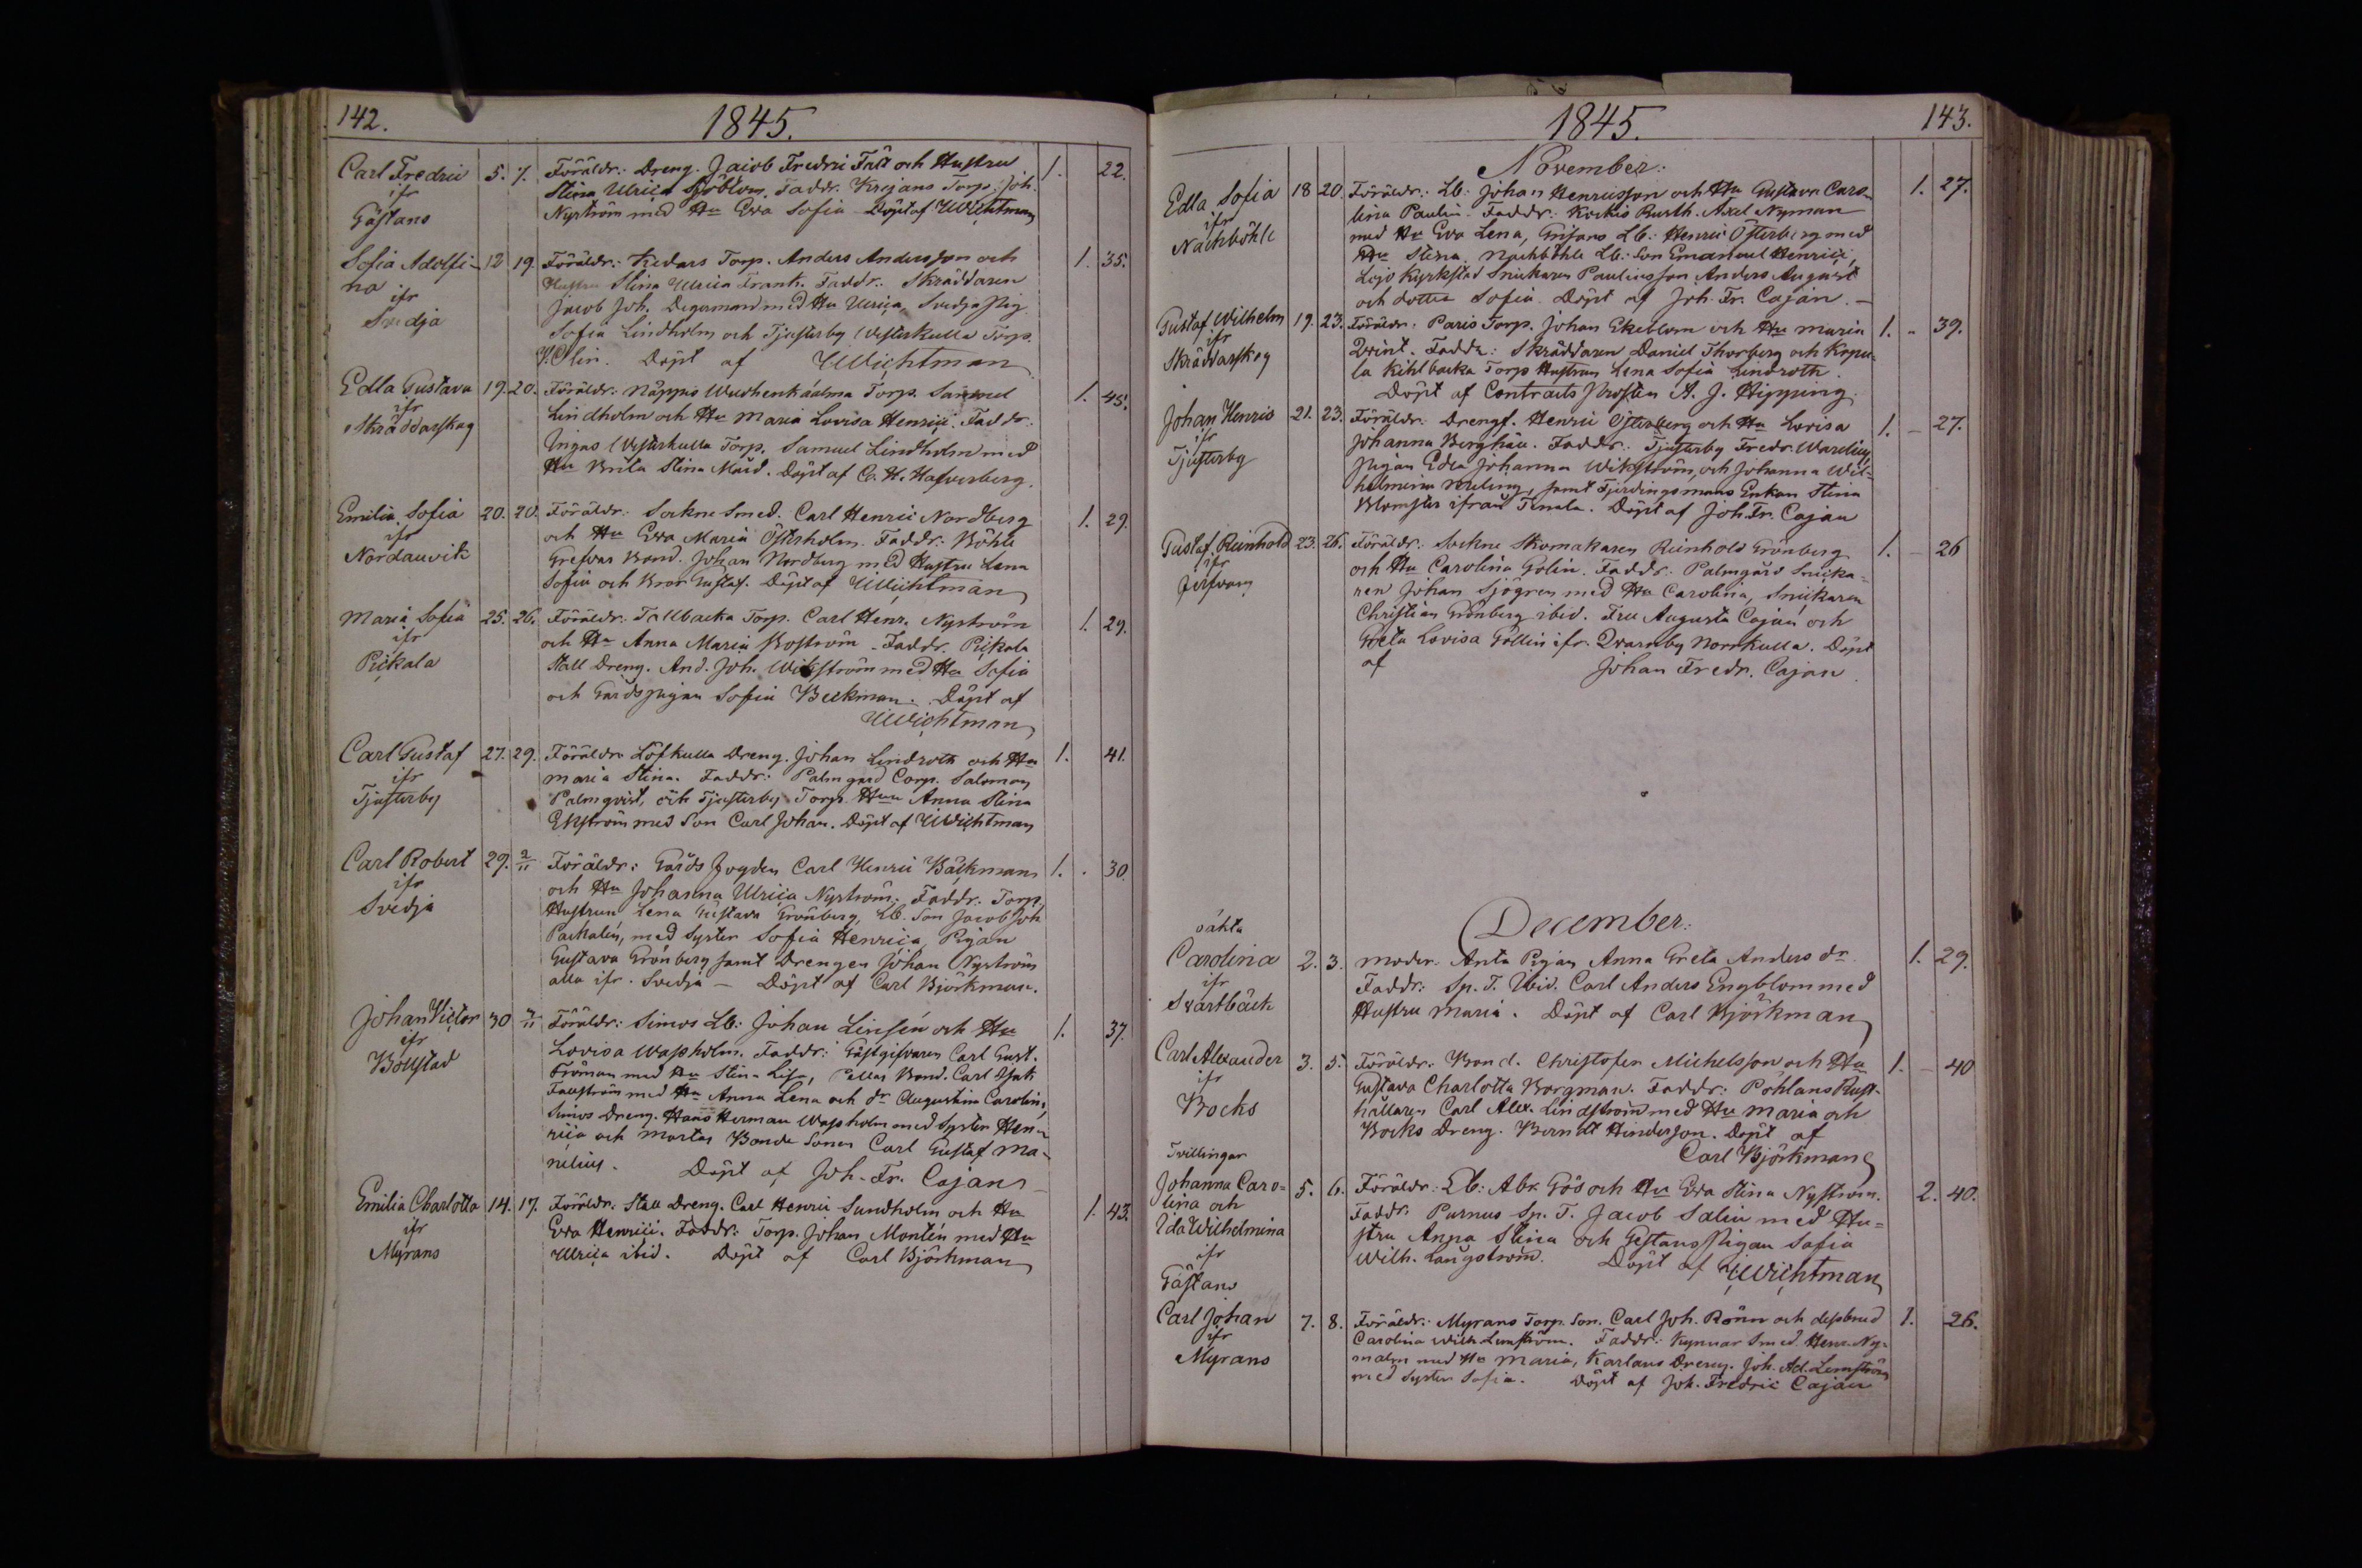 142.
1845.
Carl Fredric 5. 7. Föräldr: Dreng. Jacob Fredric Fält och Hustru 1. 22.
ifr Stina Ulrica Sjöblom. Faddr. Krejans Torp. Joh.
Gästans Nyström med Hu Eva Sofia Döpt af UWichtman
Sofia Adolfi- 12 19. Föräldr: Torp. Anders Andersson och 1. 35.
na Hustru Stina Ulrica Frank. Faddr. Skräddaren
ifr Jacob Joh. Degermand med Hu Ulrica, Svedja Pig.
Svidja Sofia Lindholm och Tjusterby Westerkulla Torp.
Olin. Döpt af UWichtman
Edla Gustava 19. 20. Föräldr: Näppis Torp. Samuel 1. 45.
ifr Lindholm och Hu Maria Lovisa Henrici. Faddr.
Skräddarskog Ingas Westerkulla Torp. Samuel Lindholm med
Hu Brita Stina Döpt af C. H. Hafverberg.
Emilia Sofia 20. 20. Föräldr: Sockne Smed. Carl Henric Nordberg 1. 29.
ifr och Hu Eva Maria Österholm. Faddr: Böhle
Nordanvik Grefvas Bond. Johan Nordberg med Hustru Lena
Sofia och Bror Gustaf. Döpt af UWichtman
Maria Sofia 25. 26. Föräldr: Tallbacka Torp. Carl Henr. Nyström 1. 29.
ifr och Hu Anna Maria Boström. Faddr. Pickala
Pickala Stall Dreng. And. Joh. Wikström med Hu Sofia
och Gårdspigan Sofia Beckman. Döpt af
UWichtman
Carl Gustaf 27. 29. Föräldr: Löfkulla Dreng. Johan Lindroth och Hu 1. 41.
ifr Maria Stina. Faddr: Palmgård Corp. Salomon
Tjusterby Palmqvist, och Tjusterby Torp. Hun Anna Stina
Ekström med Son Carl Johan. Döpt af UWichtman
Carl Robert 29. 2/11 Föräldr: Gårds Fogden Carl Henric Bäckman 1. 30.
ifr och Hu Johanna Ulrica Nyström. Faddr. Torp.
Svidja Hustrun Lena Gustava Grönberg, Lb. Son Jacob Joh
Packalén, med Syster Sofia Henrica, Pigan
Gustava Grönberg samt Drengen Johan Nyström
alla ifr. Svidja – Döpt af Carl Björkman.
Johan Victor 30 7/11 Föräldr: Simos Lb: Johan Linsén och Hu 1. 37.
ifr Lovisa Washolm. Faddr: Gästgifvaren Carl Gust.
Böllstad Froman med Hu Stina Lisa, Pellas Bond. Carl Isak
med Hu Anna Lena och dr Augustina Carolina,
Simos Dreng. Hans Herman Washolm med Syster Hen-
rica och Mortas Bonde Sonen Carl Gustaf Ma-
nelius. Döpt af Joh. Fr. Cajan
Emilia Charlotta 14. 17. Föräldr: Stall Dreng. Carl Henric Sundholm och Hu 1. 43.
ifr Eva Henrici. Faddr: Torp. Johan Montén med Hu
Myrans Ulrica ibid. Döpt af Carl Björkman
1845.
143.
November.
Edla Sofia 18 20. Föräldr: Lb: Johan Henricsson och Hu Gustava Caro- 1. 27.
ifr lina Paulin. Faddr: Kockis Rusth. Axel Nyman
Nackböhle med Hu Eva Lena, Lb: Henric Österberg med
Hu Stina. Nackböhle Lb: Son Emanuel Henrici,
Lojo Kyrkstad Snickaren Paulinsson Anders August
och dotter Sofia. Döpt af Joh. Fr. Cajan. –
Gustaf Wilhelm 19. 23. Föräldr. Paris Torp. Johan Ekeblom och Hu Maria 1. 39.
ifr Qvint. Faddr: Skräddaren Daniel Thorberg och Kopu-
Skräddarskog la Kihlbacka Torp Hustrun Lena Sofia Lindroth.
Döpt af Contracts Prosten A. J. Hipping.
Johan Henric 21. 23. Föräldr. Drengf. Henric Österberg och Hu Lovisa 1. 27.
ifr Johanna Berghäll. Faddr: Tjusterby Fredr. Warelius,
Tjusterby Pigan Edla Johanna Wikström, och Johanna Wil-
helmina samt Fjerdingsmans Enkan Stina
Blomster ifrån Tenala. Döpt af Joh. Fr. Cajan
Gustaf Reinhold 23. 26. Föräldr: Sockne Skomakaren Reinhold Grönberg 1. 26
ifr och Hu Carolina Golin. Faddr: Palmgård Snicka-
Jerfvan ren Johan Sjögren med Hu Carolina, Snickaren
Christian Grönberg ibid. Fru Augusta Cajan och
Greta Lovisa Göllin ifr. Qvarnby Norrkulla. Döpt
af Johan Fredr. Cajan
December.
oäkta
Carolina 2. 3. Moder. Anta Pigan Anna Greta Anders dr. 1. 29.
ifr Faddr: Sp. T. Ibid. Carl Anders Engblom med
Svartbäck Hustru Maria. Döpt af Carl Björkman
Carl Alexander 3. 5. Föräldr: Bond. Christofer Michelsson och Hu 1. 40
ifr Gustava Charlotta Borgman. Faddr: Pöhlans Rust-
Bocks hållaren Carl Alex. Lindström med Hu Maria och
Bocks Dreng. Berndt Hindersson. Döpt af
Carl Björkman
Tvillingar
Johanna Caro- 5. 6. Föräldr: Lb: Abr. Gös och Hu Eva Stina Nyström. 2. 40.
lina och Faddr. Purnus Sp. T. Jacob Salin med Hu-
Ida Wilhelmina stru Anna Stina och Gestans Pigan Sofia
ifr Wilh. Långström. Döpt af UWichtman
Gästans
Carl Johan 7. 8. Föräldr: Myrans Torp. Son. Carl Joh. Rönn och dess brud 1. 26.
ifr Carolina Wilh. Lemström. Faddr: Kynnar Smed. Henr. Ny-
Myrans malm med Hu Maria, Karlans Dreng. Joh. Ad. Lemström
med Syster Sofia. Döpt af Joh. Fredric Cajan